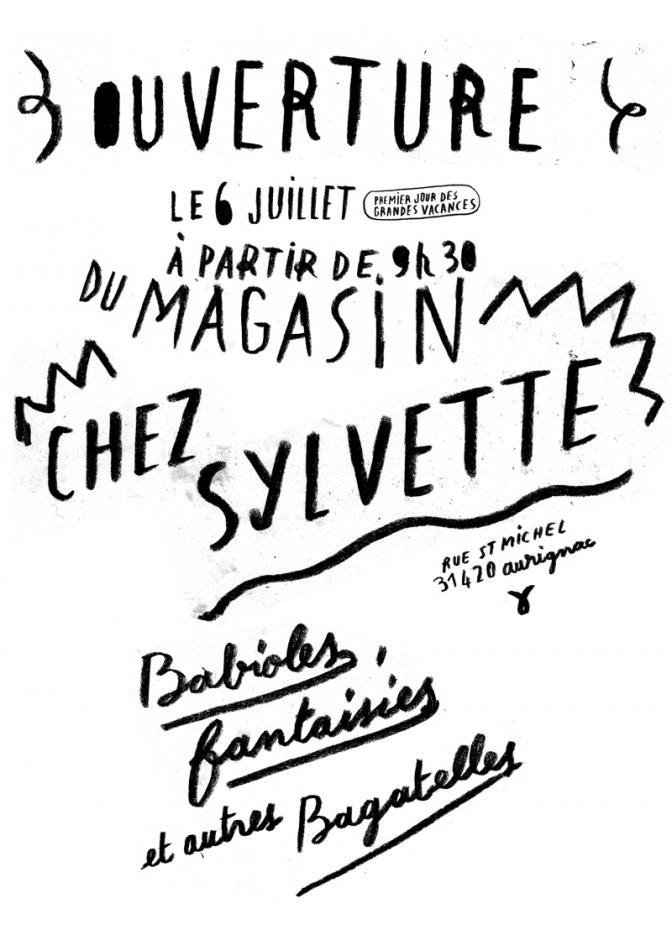 OUVERTURE
LE 6 JUILLET
PREMIER JOUR DES
GRANDES VACANCES
À PARTIR DE 9h30
DU MAGASIN
CHEZ
SYLVETTE
RUE ST MICHEL
31420 aurignac
Babioles,
fantaisies
et autres Bagatelles